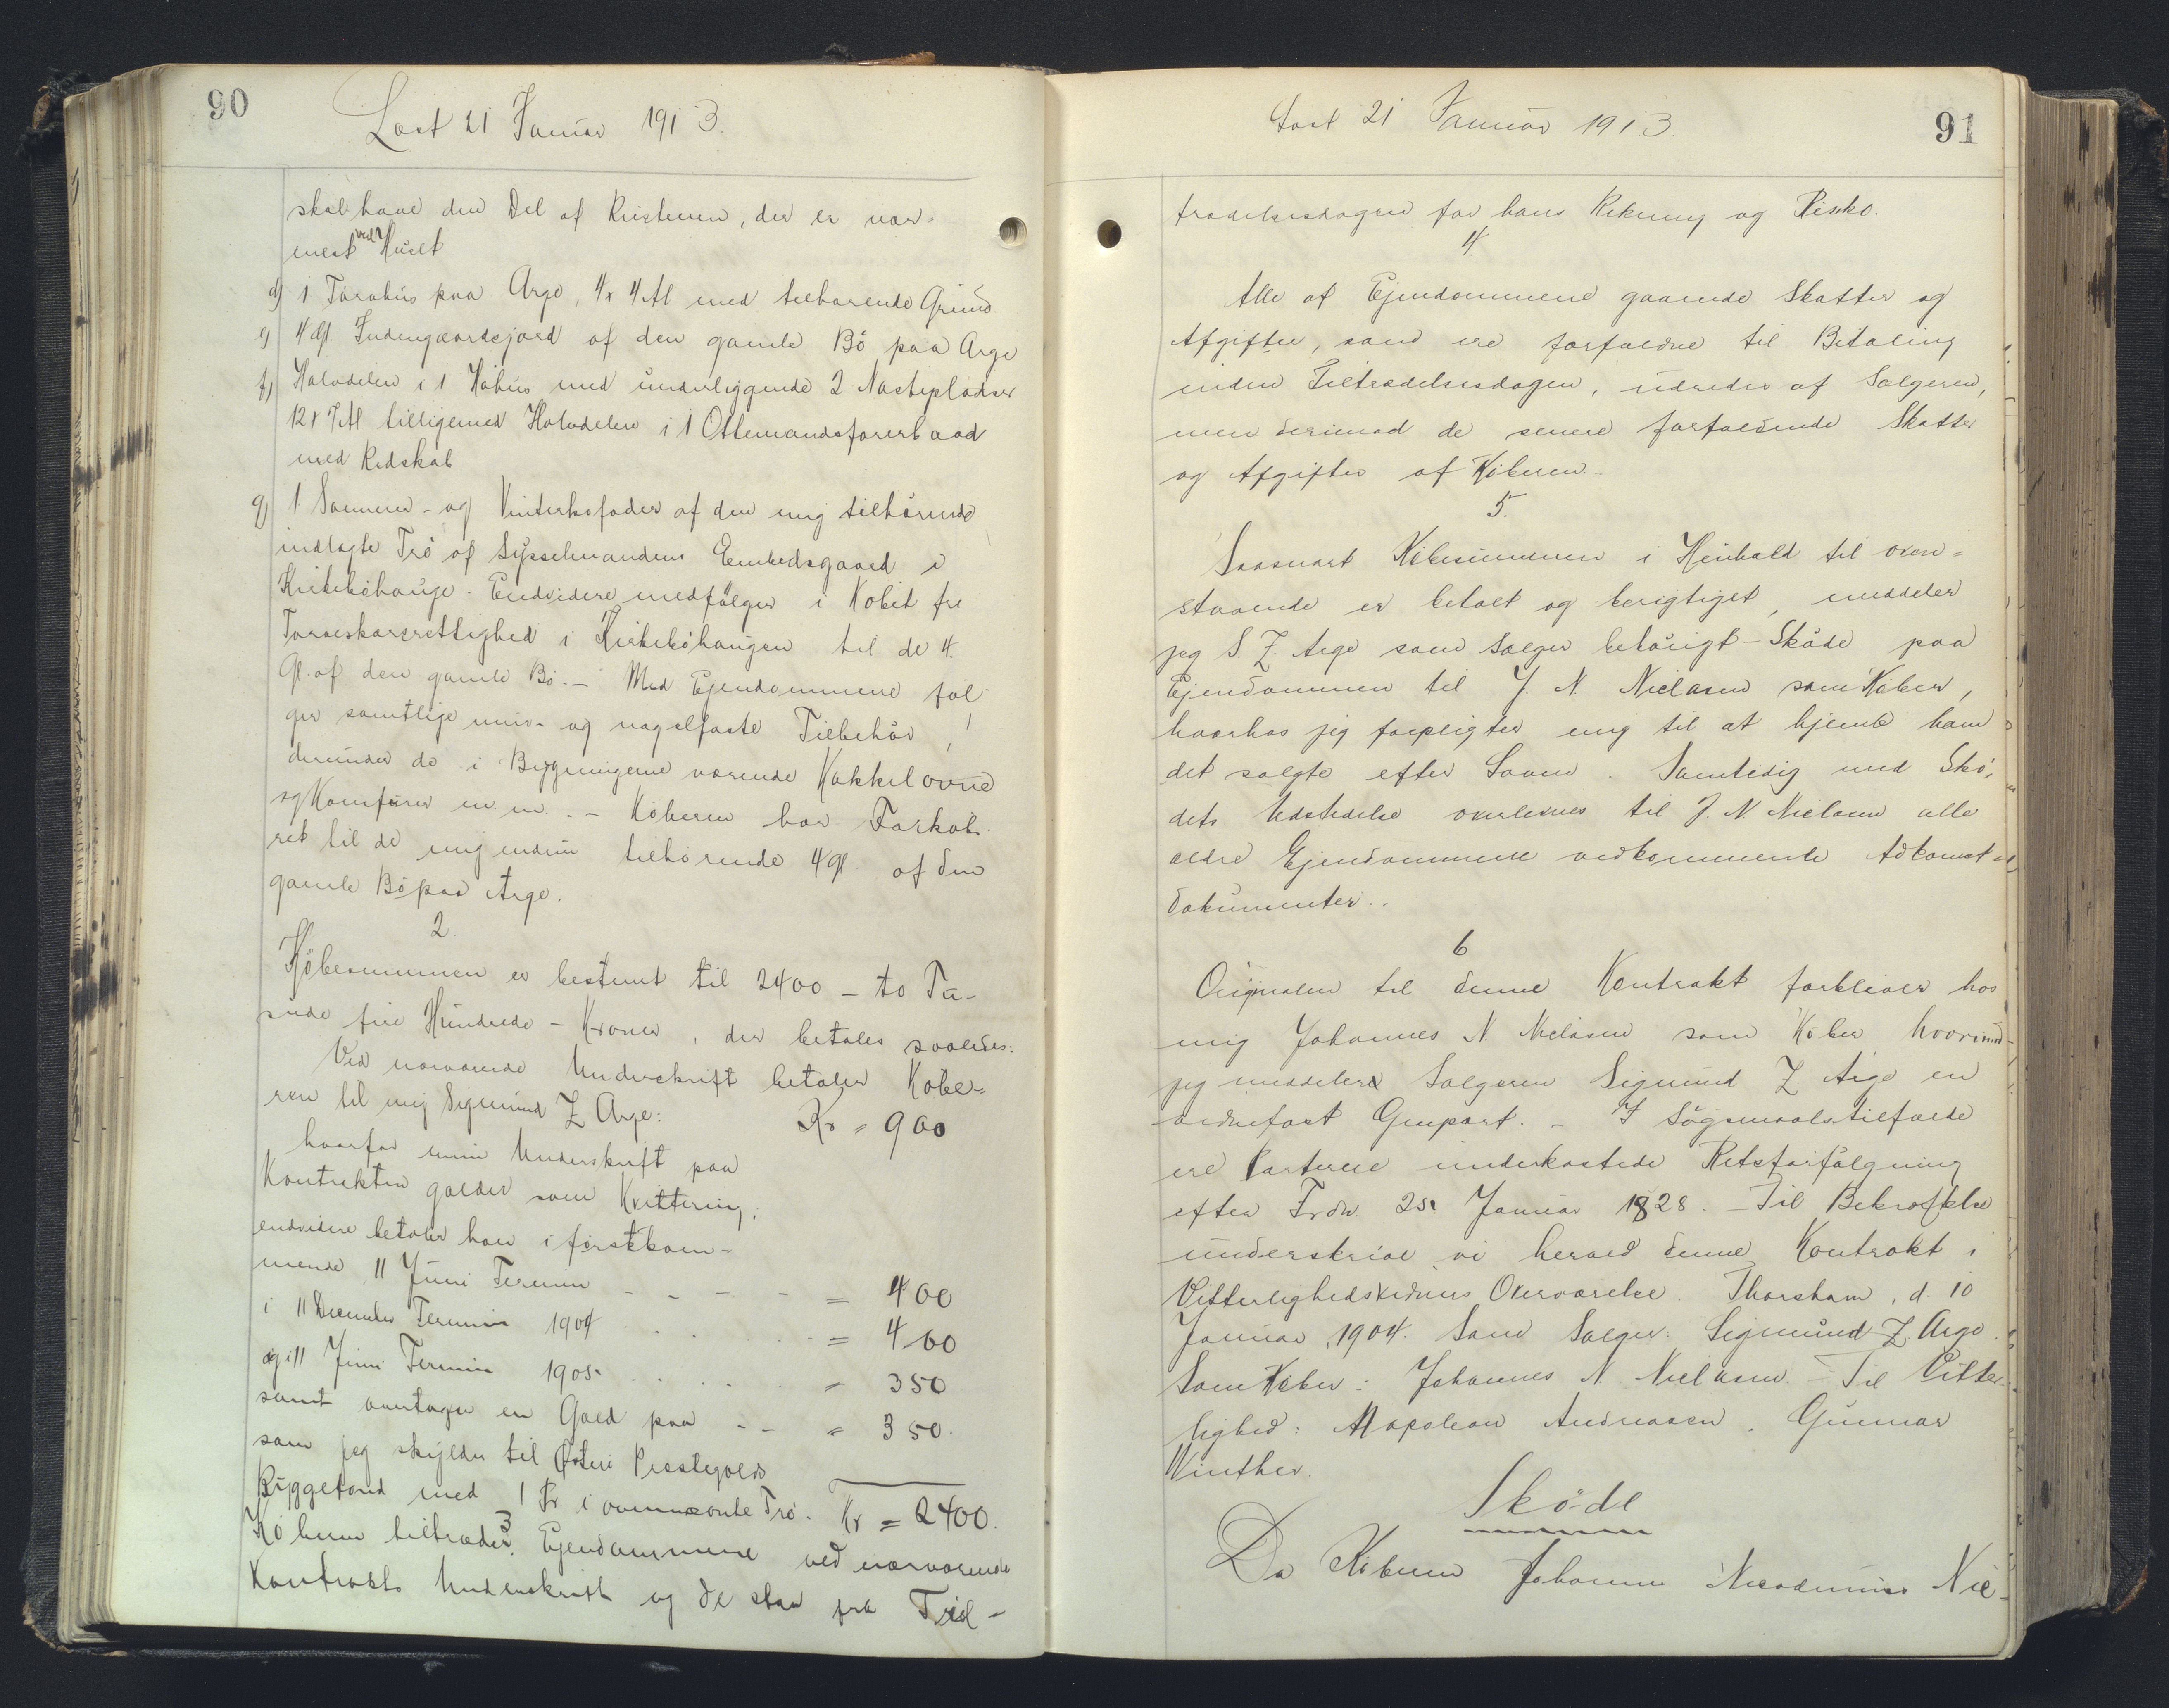 90
Læst 21 Januar 1913.
skal have den Del af Kristeren, der er nær-
mest ved Huset
d) 1 Tørvhus paa Arge, 4 x 4 Al med tilhørende Grund
e) 4 Gl. Indengaardsjord af den gamle Bø paa Arge
f) Halvdelen i 1 Høhus med underliggende 2 Nøsteplader
12 x 7 Al tilligemed Halvdelen i 1 Ottemandsfarerbaad
med Redskab
g) 1 Sommer- og Vinterkofoder af den mig tilhørende
indlagte Trø af Sysselmandens Embedsgaard i
Kirkebøhauge. Endvidere medfølger i Købet fri
Tørveskærsrettighed i Kirkebøhaugen til de 4
Gl. af den gamle Bø. - Med Ejendommene føl-
ger samtlige mur- og nagelfaste Tilbehør,
derunder de i Bygningerne værende Kakkelovne
og Komfurer m.m. - Køberen har Forkøbs-
ret til de mig endnu tilhørende 4 Gl. af den
gamle Bø paa Arge.
2.
Købesummen er bestemt til 2400 - to Tu-
sinde fire Hundrede - Kroner, der betales saaledes:
Ved nærværende Underskrift betaler Købe-
ren til mig Sigmund Z Arge: Kr = 900
hvorfor min Underskrift paa
Kontrakten gælder som Kvittering,
endvidere betaler han i førstkom-
mende 11 Juni Termin - - - - = 400
i 11 December Termin 1904 . . . . = 400
og i 11 Juni Termin 1905 . . . . = 350
samt overtager en Gæld paa - - = 350.
som jeg skylder til Østerø Præstegælds
Byggefond med 1 Pr i ovennævnte Trø. Kr = 2400.
3
Køberen tiltræder Ejendommene ved nærværende
Kontrakts Underskrift og de staa fra Til-
91
Læst 21 Januar 1913.
trædelsesdagen for hans Rekning og Risiko.
4.
Alle af Ejendommene gaaende Skatter og
Afgifter, som ere forfaldne til Betaling
inden Tiltrædelsesdagen, udredes af Sælgeren,
men derimod de senere forfaldende Skatter
og Afgifter af Køberen.
5.
Saasnart Købesummen i Henhold til oven-
staaende er betalt og berigtiget, meddeler
jeg S. Z. Arge som Sælger behørigt Skøde paa
Ejendommen til J. N. Nielasen som Køber,
hvorhos jeg forpligter mig til at hjemle ham
det solgte efter Loven. Samtidig med Skø-
dets Udstedelse overleveres til J. N. Nielasen alle
ældre Ejendommene vedkommende Adkomst-
dokumenter..
6
Originalen til denne Kontrakt forbliver hos
mig Johannes N. Nielasen som Køber hvorimod
jeg meddeler Sælgeren Sigmund Z Arge en
ordlydfast Genpart. - I Søgsmaalstilfælde
ere Parterne underkastede Retsforfølgning
efter Frdn. 25. Januar 1828. - Til Bekræftelse
underskrive vi herved denne Kontrakt i
Vitterlighedsvidners Overværelse. Thorshavn, d. 10
Januar 1904. Som Sælger: Sigmund Z. Arge.
Som Køber: Johannes N. Nielasen. - Til Vitter-
lighed: Napoleon Andreasen. Gunnar
Winther.
Skøde
Da Køberen Johannes Nicodemus Nie-